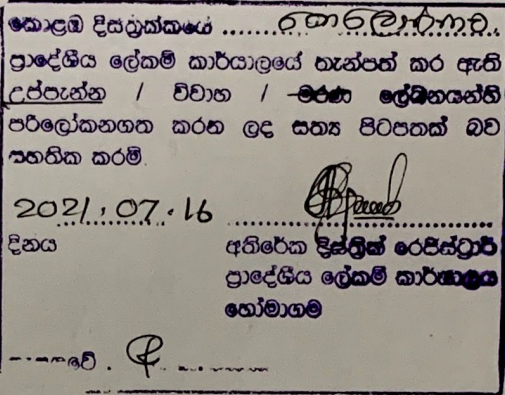 කොළඹ දිස්ත්‍රික්කයේ ........
ප්‍රාදේශීය ලේකම් කාර්යාලයේ තැන්පත් කර ඇති
උප්පැන්න / විවාහ / මරණ ලේඛනයන්හි
පරිලෝකනගත කරන ලද සත්‍ය පිටපතක් බව
සහතික කරමි.
2021.07.16 ........
දිනය අතිරේක දිස්ත්‍රික් රෙජිස්ට්‍රාර්
ප්‍රාදේශීය ලේකම් කාර්යාලය
හෝමාගම